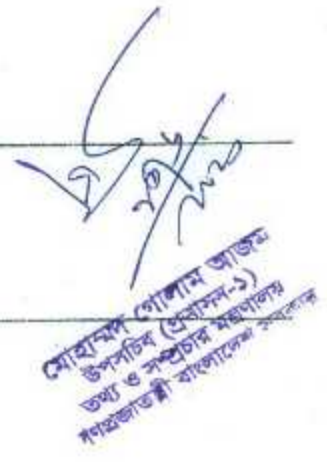 মোহাম্মদ গোলাম আজম
উপসচিব (প্রশাসন-১)
তথ্য ও সম্প্রচার মন্ত্রণালয়
গণপ্রজাতন্ত্রী বাংলাদেশ সরকার